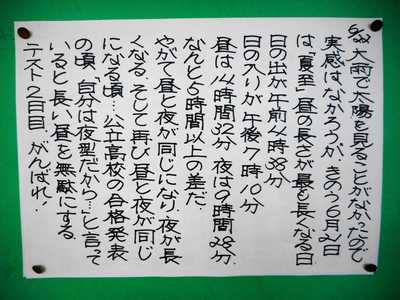 6/22 大雨で太陽を見ることがなかったので
実感はなかろうが、きのう6月21日
は「夏至」昼の長さが最も長くなる日
日の出が午前4時38分
日の入りが午後7時10分
昼は14時間32分 夜は9時間28分.
なんと5時間以上の差だ.
やがて昼と夜が同じになり、夜が長
くなる。そして再び昼と夜が同じ
になる頃…公立高校の合格発表
の頃、「自分は夜型だから…」と言って
いると長い昼を無駄にする.
テスト2日目 がんばれ!